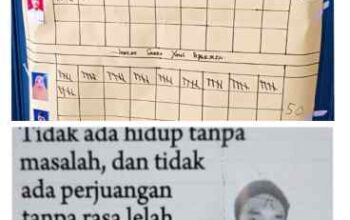 50
Tidak ada hidup tanpa
masalah, dan tidak
ada perjuangan
tanpa rasa lelah